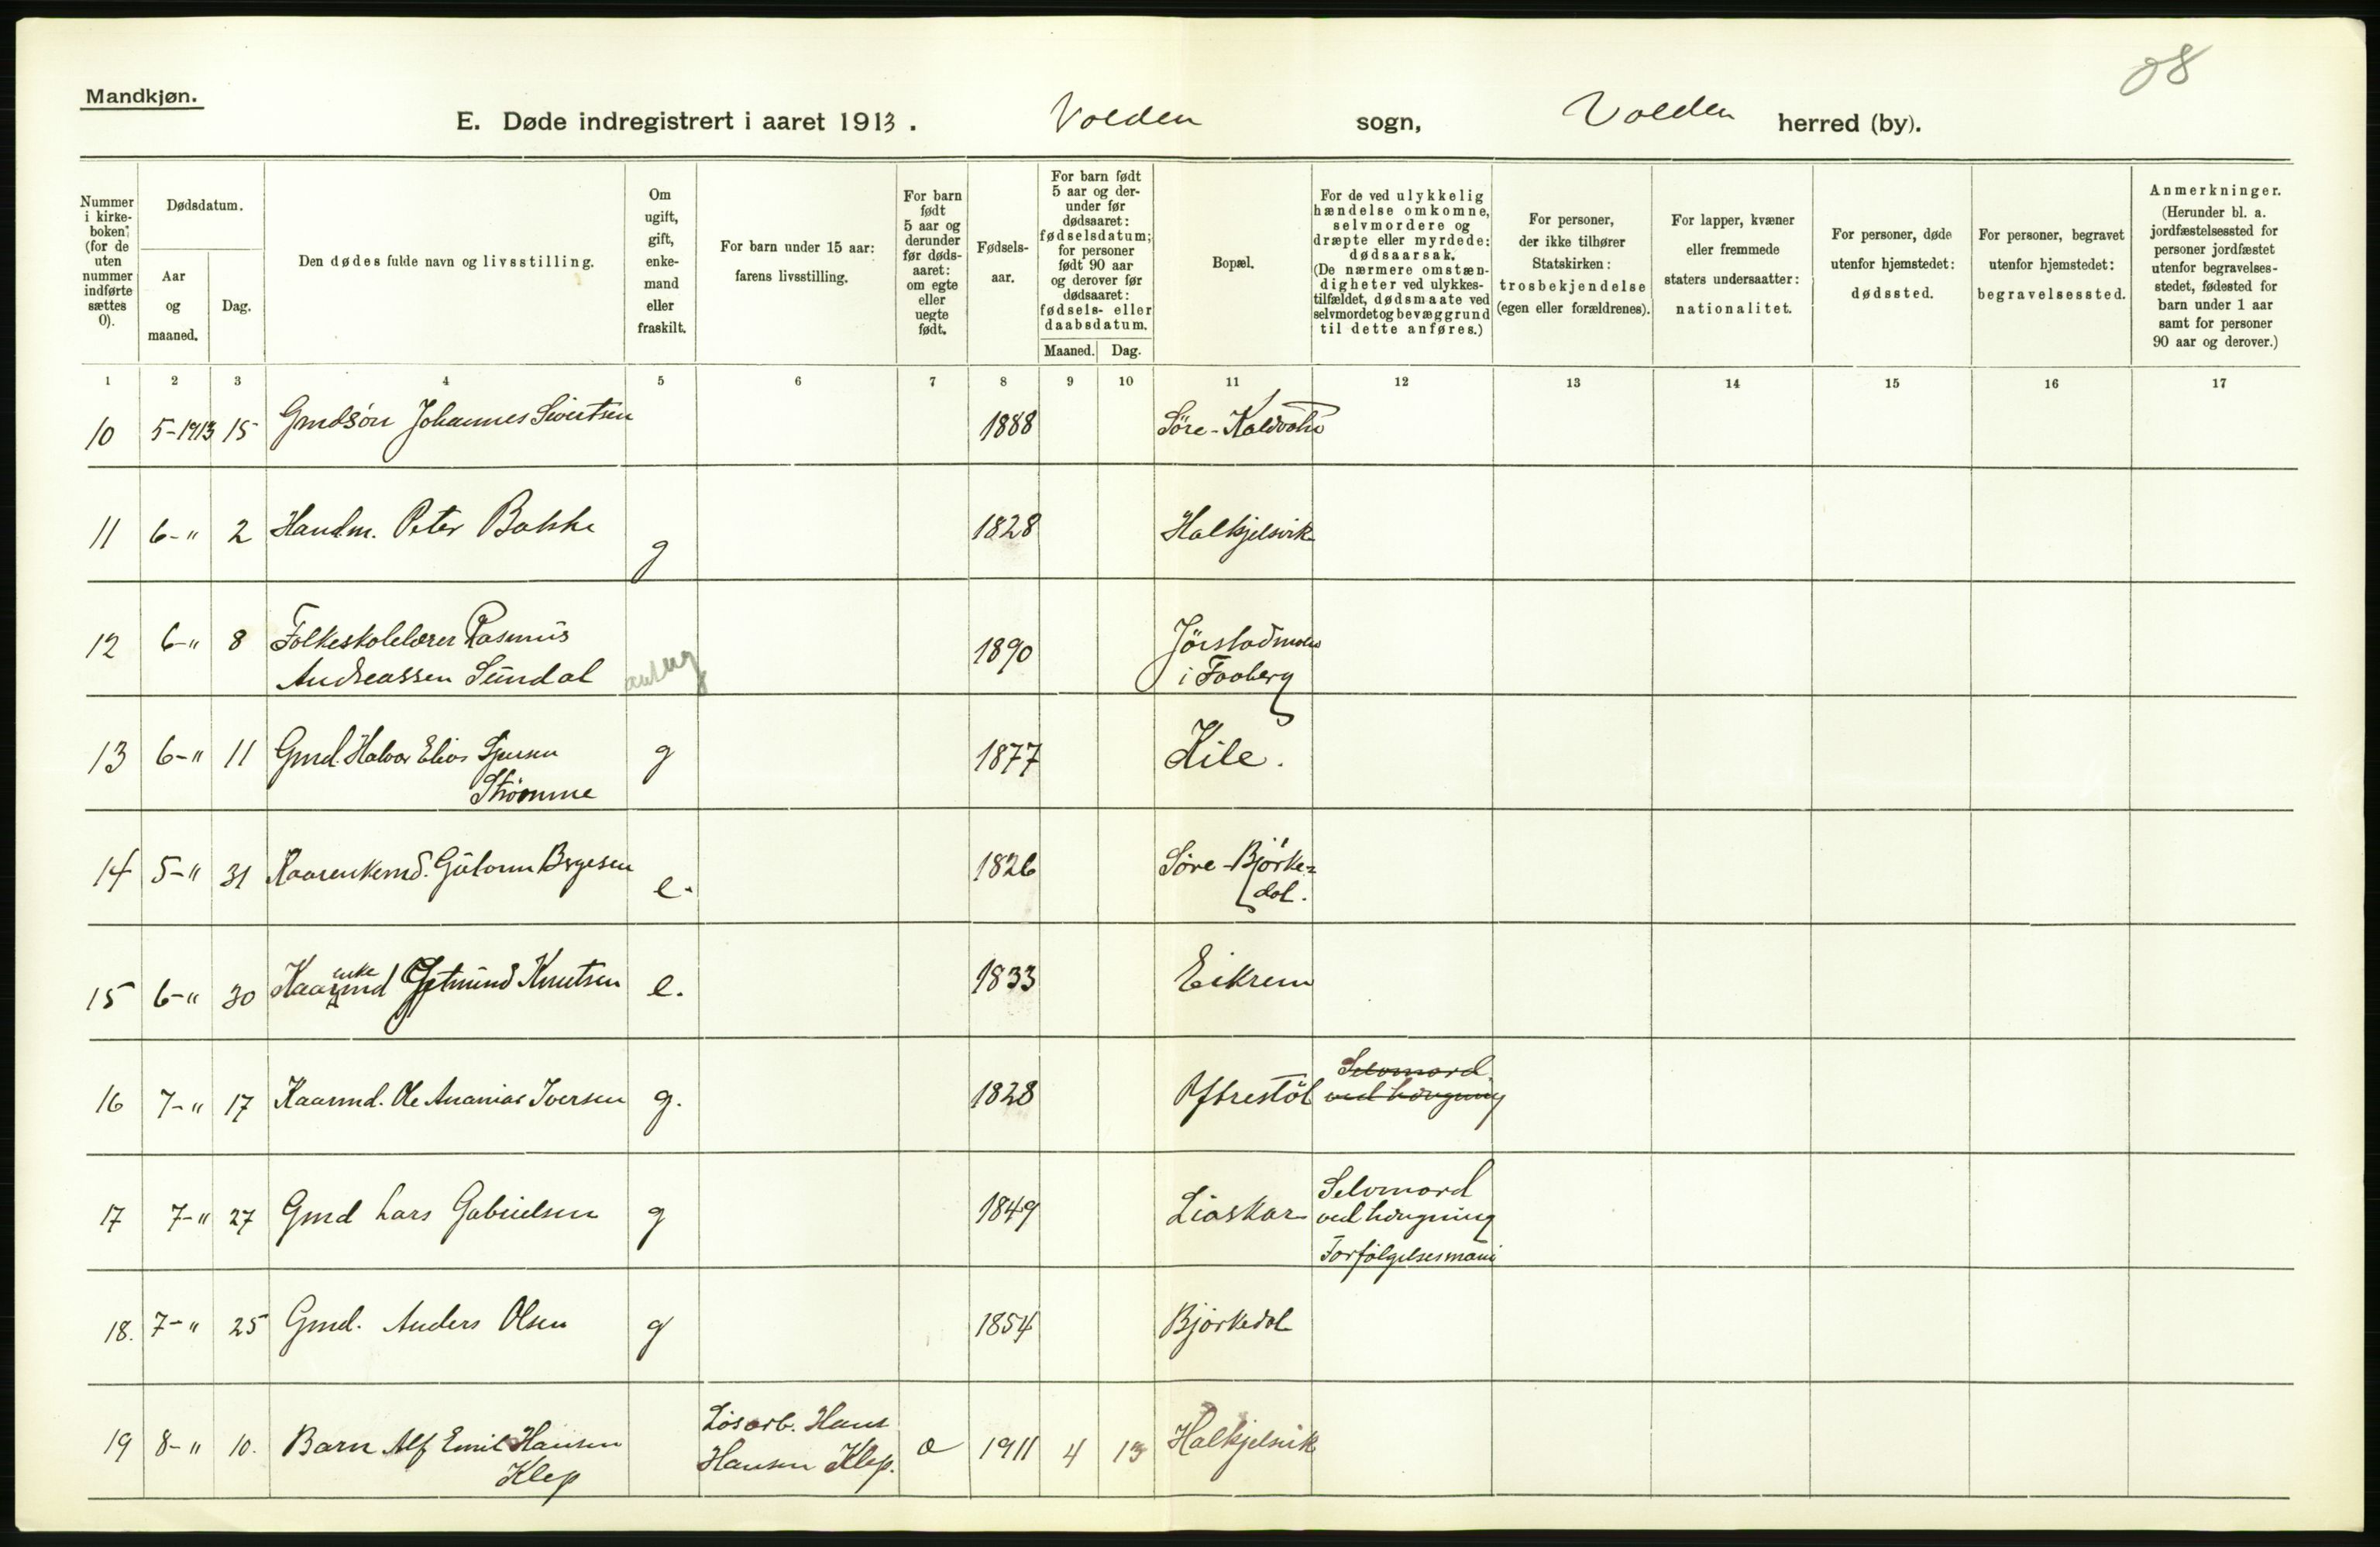 Mandkjøn.
E. Døde indregistrert i aaret 1913. Volden sogn, Volden herred (by).
Nummer i kirkeboken; (for de uten nummer indførte sættes 0).
Dødsdatum.
Aar og maaned.
Dag.
Den dødes fulde navn og livsstilling.
Om ugift, gift, enkemand eller fraskilt.
For barn under 15 aar: farens livsstilling.
For barn født 5 aar og derunder før dødsaaret: om egte eller uegte født.
Fødselsaar.
For barn født 5 aar og derunder før dødsaaret: fødselsdatum; for personer født 90 aar og derover før dødsaaret: fødsels- eller daabsdatum.
Maaned.
Dag.
Bopæl.
For de ved ulykkelig hændelse omkomne, selvmordere og dræpte eller myrdede: dødsaarsak. (De nærmere omstændigheter ved ulykkestilfældet, dødsmaate ved selvmordet og bevæggrund til dette anføres.)
For personer, der ikke tilhører Statskirken: trosbekjendelse (egen eller forældrenes).
For lapper, kvæner eller fremmede staters undersaatter: nationalitet.
For personer, døde utenfor hjemstedet: dødssted.
For personer, begravet utenfor hjemstedet: begravelsessted.
Anmerkninger. (Herunder bl. a. jordfæstelsessted for personer jordfæstet utenfor begravelsesstedet, fødested for barn under 1 aar samt for personer 90 aar og derover.)
1 2 3 4 5 6 7 8 9 10 11 12 13 14 15 16 17
10 5-1913 15 Gmdsön Johannes Sivertsen 1888 Söre-Kaldvatn
11 6-" 2 Handm. Peter Bakke g 1828 Halkjelsvik
12 6-" 8 Folkeskolelærer Rasmus 1890 Jörstadmoen
Andreassen Sundal i Faaberg
13 6-" 11 Gmd. Halvor Elias g 1877 Kile.
Strömme
14 5-" 31 Kaarenkemd. Gutorm Bergesen e. 1826 Söre-Björke-
dal.
15 6-" 30 Kaarenkemd Knutsen e. 1833 Eikrem
16 7-" 17 Kaarmd. Ole Ananias Iversen g. 1828 Yttrestöl Selvmord
ved hængning
17 7-" 27 Gmd Lars Gabrielsen g 1849 Liaskar Selvmord
ved hængning
Forfölgelsesmani
18. 7-" 25 Gmd. Anders Olsen g 1854 Björkedal
19 8-" 10. Barn Alf Emil Hansen Lösarb. Hans 1911 4 13 Halkjelsvik
Klep Hansen Klep.